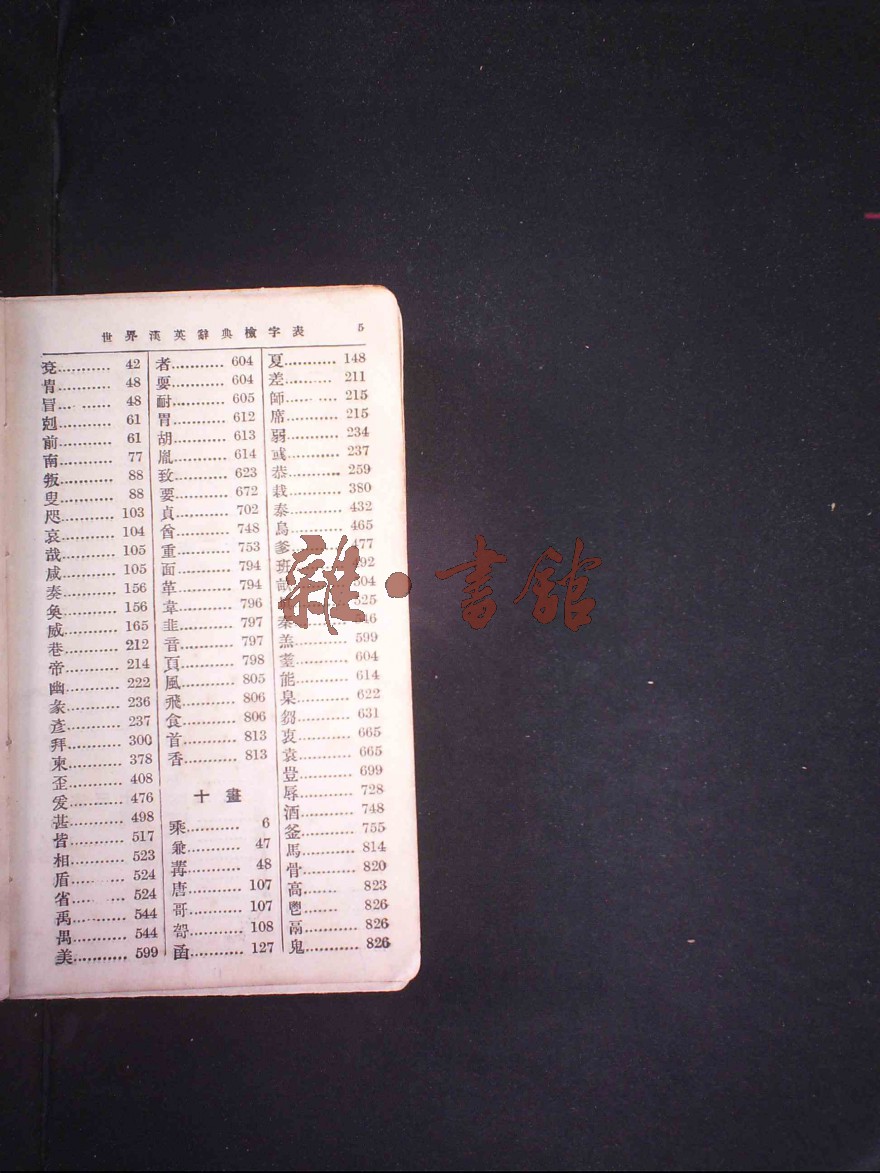 世界漢英辭典檢字表 5
兗........... 42
冑........... 48
冒........... 48
剋........... 61
前........... 61
南........... 77
叛........... 88
叟........... 88
咫........... 103
哀........... 104
哉........... 105
咸........... 105
奏........... 156
奐........... 156
威........... 165
巷........... 212
帝........... 214
幽........... 222
彖........... 236
彥........... 237
拜........... 300
柬........... 378
歪........... 408
爰........... 476
甚........... 498
皆........... 517
相........... 523
盾........... 524
省........... 524
禹........... 544
禺........... 544
美........... 599
者........... 604
耍........... 604
耐........... 605
胃........... 612
胡........... 613
胤........... 614
致........... 623
要........... 672
貞........... 702
酋........... 748
重........... 753
面........... 794
革........... 794
韋........... 796
韭........... 797
音........... 797
頁........... 798
風........... 805
飛........... 806
食........... 806
首........... 813
香........... 813
十畫
乘........... 6
兼........... 47
冓........... 48
唐........... 107
哥........... 107
哿........... 108
函........... 127
夏........... 148
差........... 211
師........... 215
席........... 215
弱........... 234
彧........... 237
恭........... 259
栽........... 380
泰........... 432
烏........... 465
爹........... 477
班
秦
羔........... 599
耄........... 604
能........... 614
臬........... 622
芻........... 631
衷........... 665
袁........... 665
豈........... 699
辱........... 728
酒........... 748
釜........... 755
馬........... 814
骨........... 820
高........... 823
鬯........... 826
鬲........... 826
鬼........... 826
雜·書館